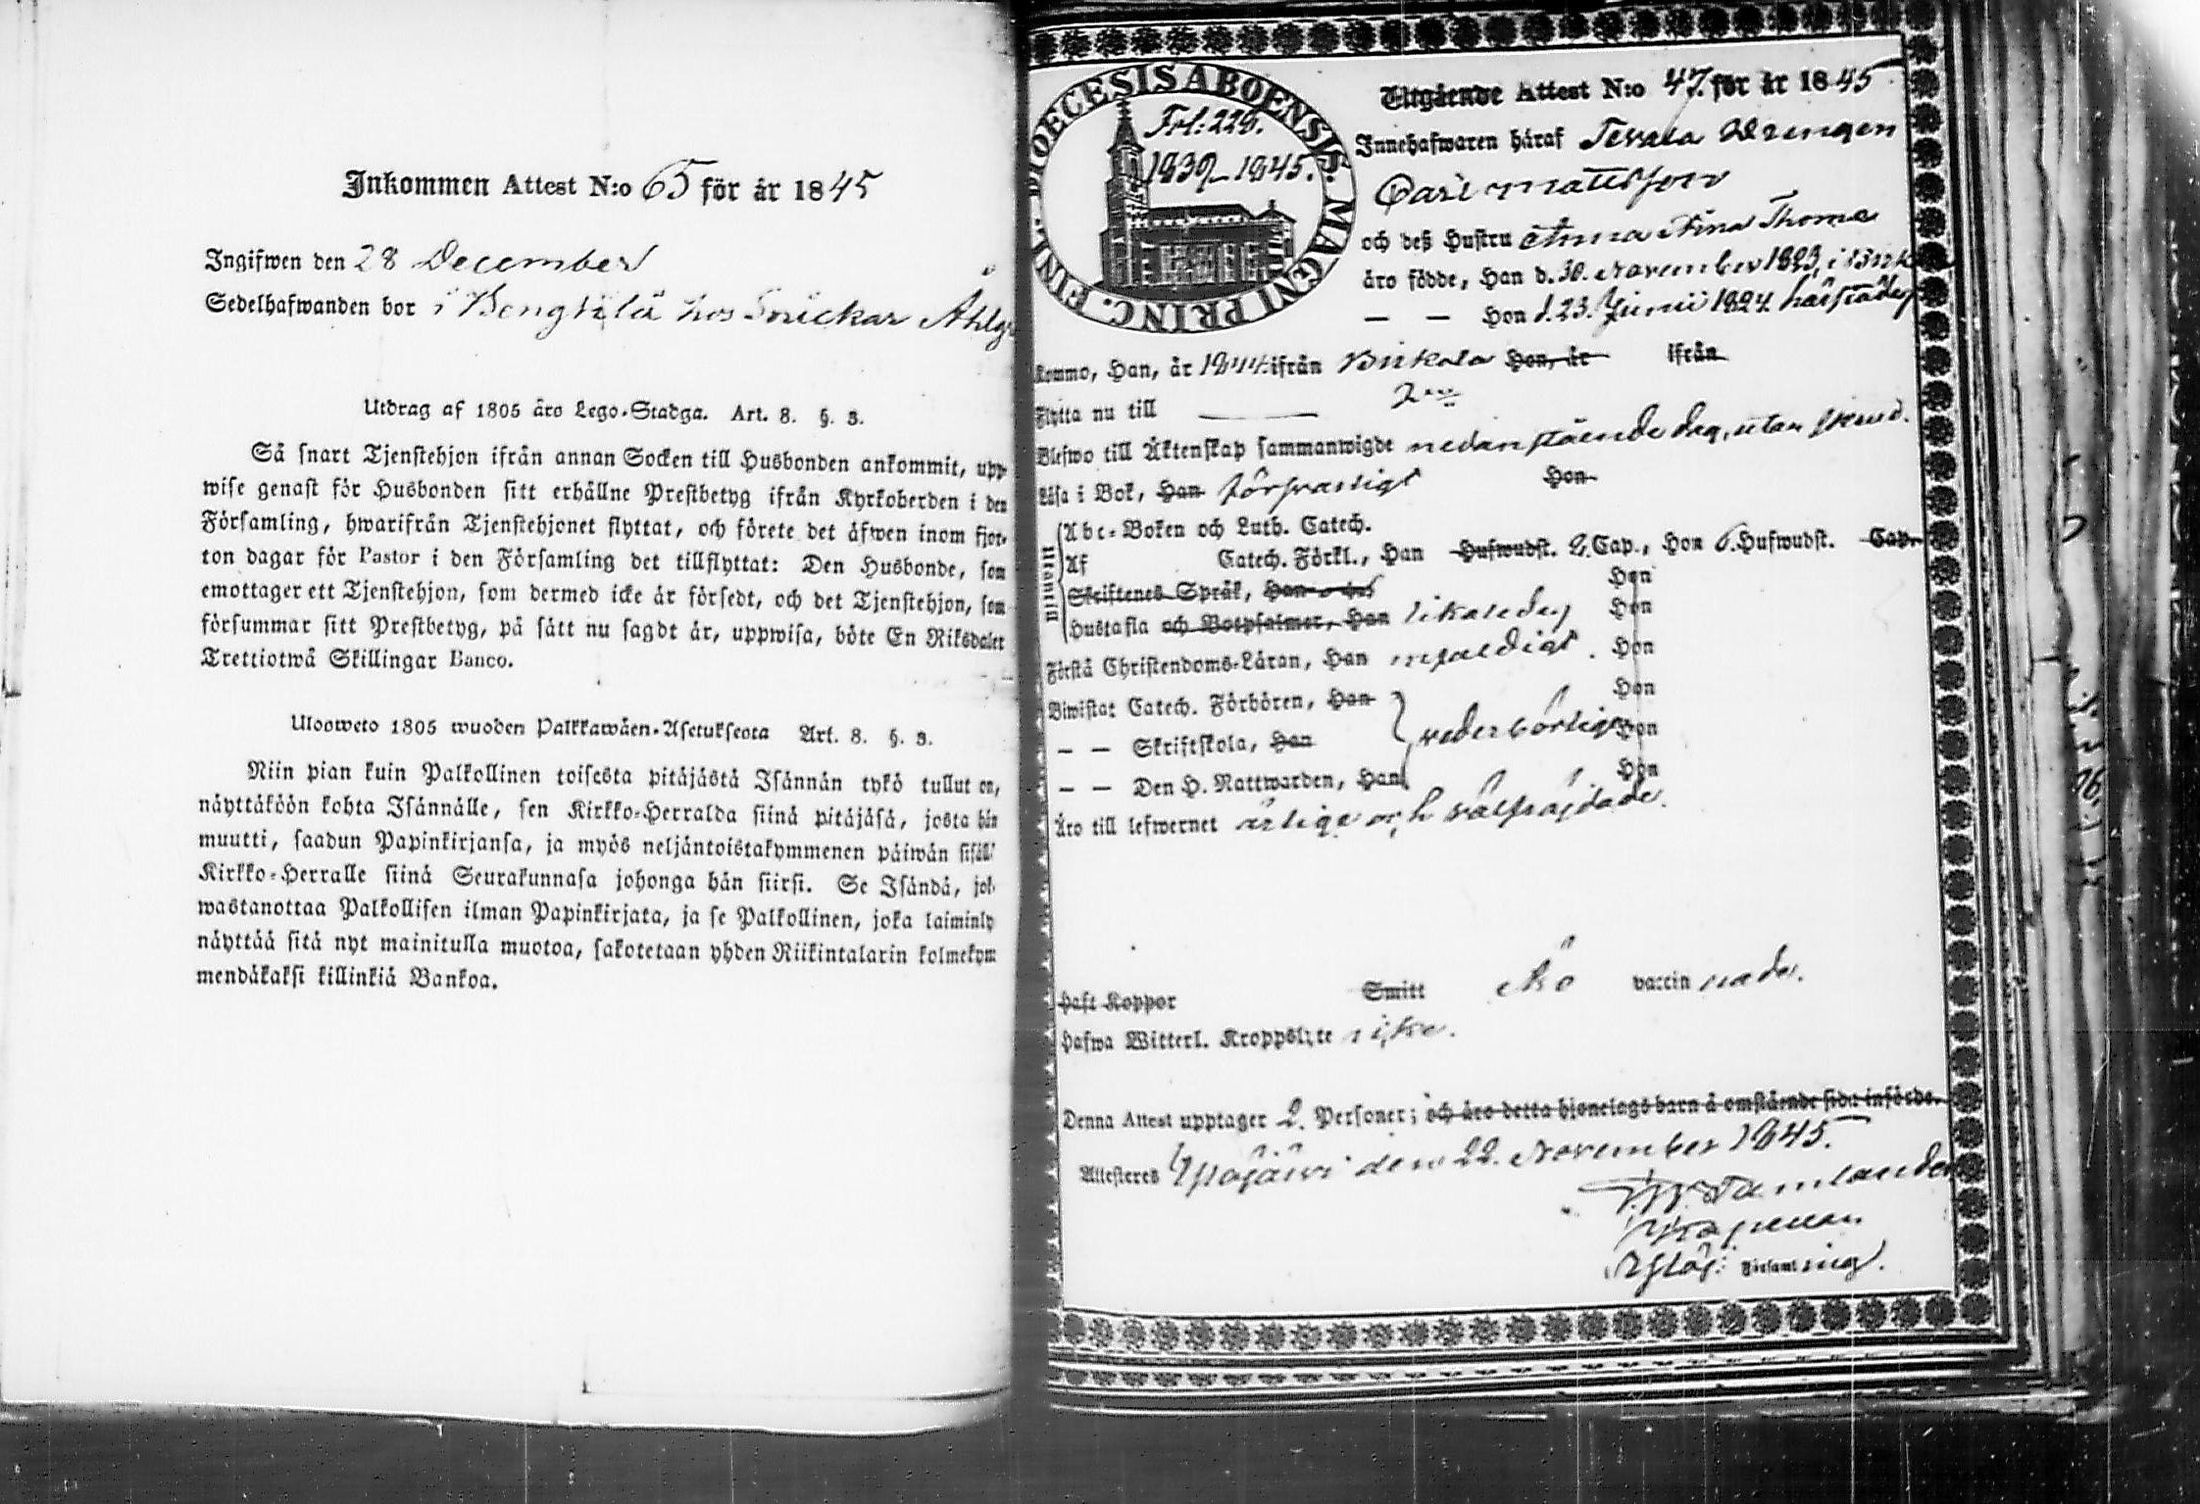 Inkommen Attest N:o 65 för år 1845
Ingifwen den 28 December
Sedelhafwanden bor i Bengtilä hos Snickar Ahlgr
Utdrag af 1805 års Lego-Stadga. Art. 8. §. 3.
Så snart Tjenstehjon ifrån annan Socken till Husbonden ankommit, upp
wise genast för Husbonden sitt erhållne Prestbetyg ifrån Kyrkoherden i den
Församling, hwarifrån Tjenstehjonet flyttat, och förete det äfwen inom fjor-
ton dagar för Pastor i den Församling det tillflyttat: Den Husbonde, som
emottager ett Tjenstehjon, som dermed icke är försedt, och det Tjenstehjon, som
försummar sitt Prestbetyg, på sätt nu sagdt är, uppwisa, böte En Riksdaler
Trettiotwå Skillingar Banco.
Ulosweto 1805 wuoden Palkkawäen-Asetuksesta Art. 8. §. 3.
Niin pian kuin Palkollinen toisesta pitäjästä Isännän tykö tullut on,
näyttäköön kohta Isännälle, sen Kirkko-Herralda siinä pitäjäsä, josta hän
muutti, saadun Papinkirjansa, ja myös neljäntoistakymmenen päiwän sisäll'
Kirkko-Herralle siinä Seurakunnasa johonga hän siirsi. Se Isändä, jok
wastanottaa Palkollisen ilman Papinkirjata, ja se Palkollinen, joka laiminly
näyttää sitä nyt mainitulla muotoa, sakotetaan yhden Riikintalarin kolmekym
mendäkaksi killinkiä Bankoa.
DIOECESIS ABOENSIS. MAGNI PRINC. FINL.
Fol: 228.
1839-1845.
Utgående Attest N:o 47. för år 1845
Innehafwaren häraf Drengen
Carl Mattsson
och deß Hustru Anna Stina Thoma
äro födde, Han d. 30. November 1823, i Birk
— — Hon d. 23. Junii 1824 härstädes
Kommo, Han, år 1844 ifrån Birkala Hon, år ifrån
Flytta nu till
Blefwo till Äktenskap sammanwigde nedanstående dag, utan skuld.
Läsa i Bok, Han försvarligt Hon
Utantill
Abc-Boken och Luth. Catech.
Af Catech. Förkl., Han Hufwudst. 2. Cap., Hon 6. Hufwudst. Cap.
Skriftenes Språk, Han Hon
Hustafla och Botpsalmer, Han likaledes Hon
Förstå Christendoms-Läran, Han enfaldigt. Hon
Biwistat Catech. Förhören, Han Hon
— — Skriftskola, Han vederbörligen Hon
— — Den H. Nattwarden, Han Hon
Äro till lefwernet ärliga och välfrejdade.
Haft Koppor Smitt Äro vaccinnade.
Hafwa Witterl. Kroppslyte icke.
Denna Attest upptager 2. Personer; och äro detta hjonelags barn å omstående sida införde.
Attesteras Ylöjärvi den 22. November 1845.
Ylöj: Församling.